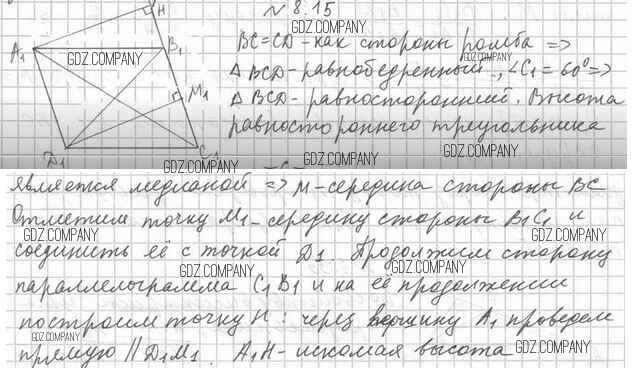 N 8.15
GDZ.COMPANY
H
A₁
B₁
GDZ.COMPANY
M₁
D₁
C₁
BC=CD-как стороны ромба =>
GDZ.COMPANY
△ BCD-равнобедренный, ∠C₁=60⁰=>
△ BCD-равносторонний. Высота
GDZ.COMPANY
равностороннего треугольника
GDZ.COMPANY
GDZ.COMPANY
GDZ.COMPANY
является медианой => M-середина стороны BC
GDZ.COMPANY
Отметим точку M₁-середину стороны B₁C₁ и
GDZ.COMPANY
GDZ.COMPANY
соединить её с точкой D₁. Продолжим сторону
GDZ.COMPANY
GDZ.COMPANY
параллелограмма C₁B₁ и на её продолжении
построим точку H: через вершину A₁ проведем
GDZ.COMPANY
прямую || D₁M₁. A₁H-искомая высота
GDZ.COMPANY